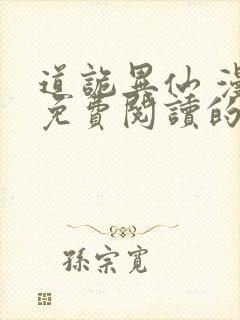 道詭異仙 漫
免費閱讀的
孫宗寬